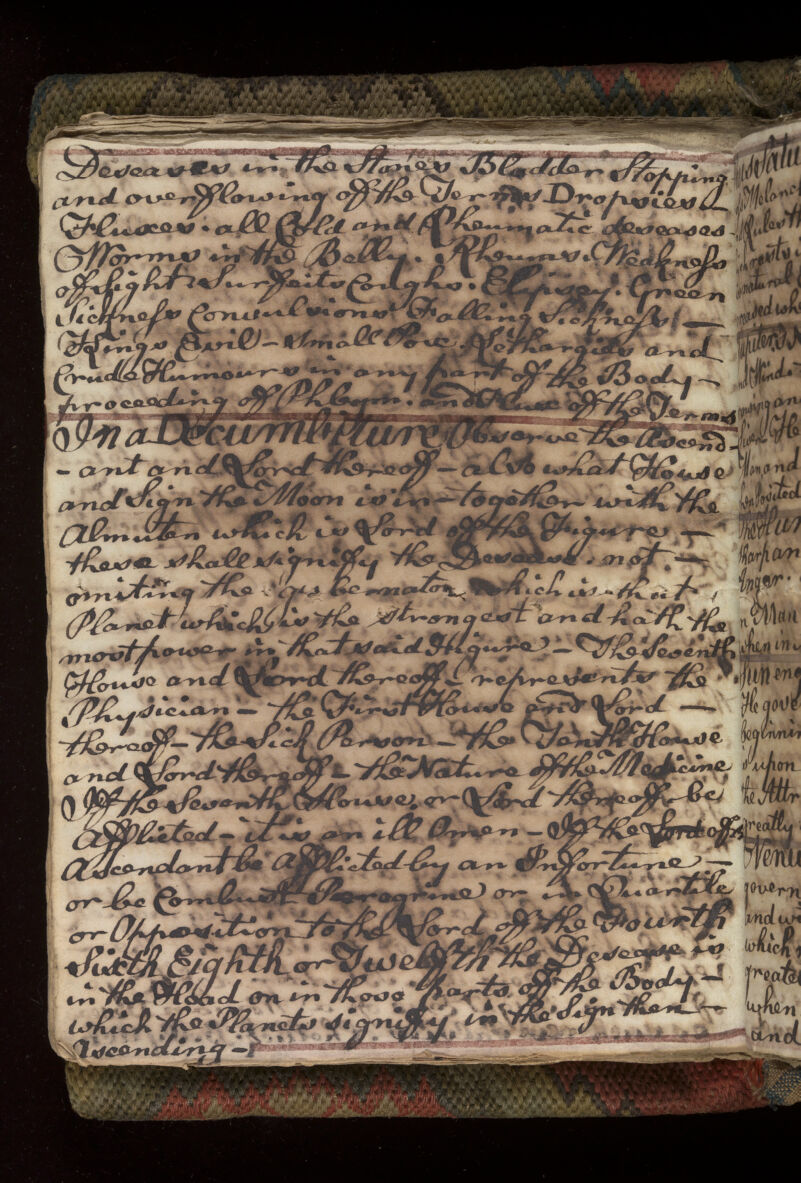 Deseases in the Stones Bladder Stopping
and overflowing off the Terms Dropsies &
Fluxes. all Cold and Rheumatic deseases
Worms in the Belly. Rheums. Weakness
off sight Surfeits Coughs. Elipsey. Green
Sickness Convulsions Falling Sickness —
Kings Evil - Small Pox Lethargies and
Crude Humours in any part off the Body -
proceeding off Phlegm. and Fluxe off the Terms
In a Decumbiture Observe the Ascend-
- ant and Lord thereoff - also what House
and Sign the Moon is in - together with the
Almuten which is Lord off the Figure —
these shall signiffy the Desease. not —
omiting the gubernator which is that
Planet which is the strongest and hath the
most power in that said Figure - The Seventh
House and Lord thereoff - represents the
Physician - the First House and Lord —
thereoff - the Sick Person - the Tenth House
and Lord thereoff - the Nature off the Medicine
Iff the Seventh House, or Lord thereoff be
Afflicted - it is an ill Omen - Iff the Lord offs
Ascendant be Afflicted by an Inffortune —
or be Combust Peregrine or in Quartile
or Opposition to the Lord off the Fourth
Sixth Eighth or Twelffth the Desease is
in the Head on in those parts off the Body -
which the Planets signiffy in the Sign then -
Ascending -